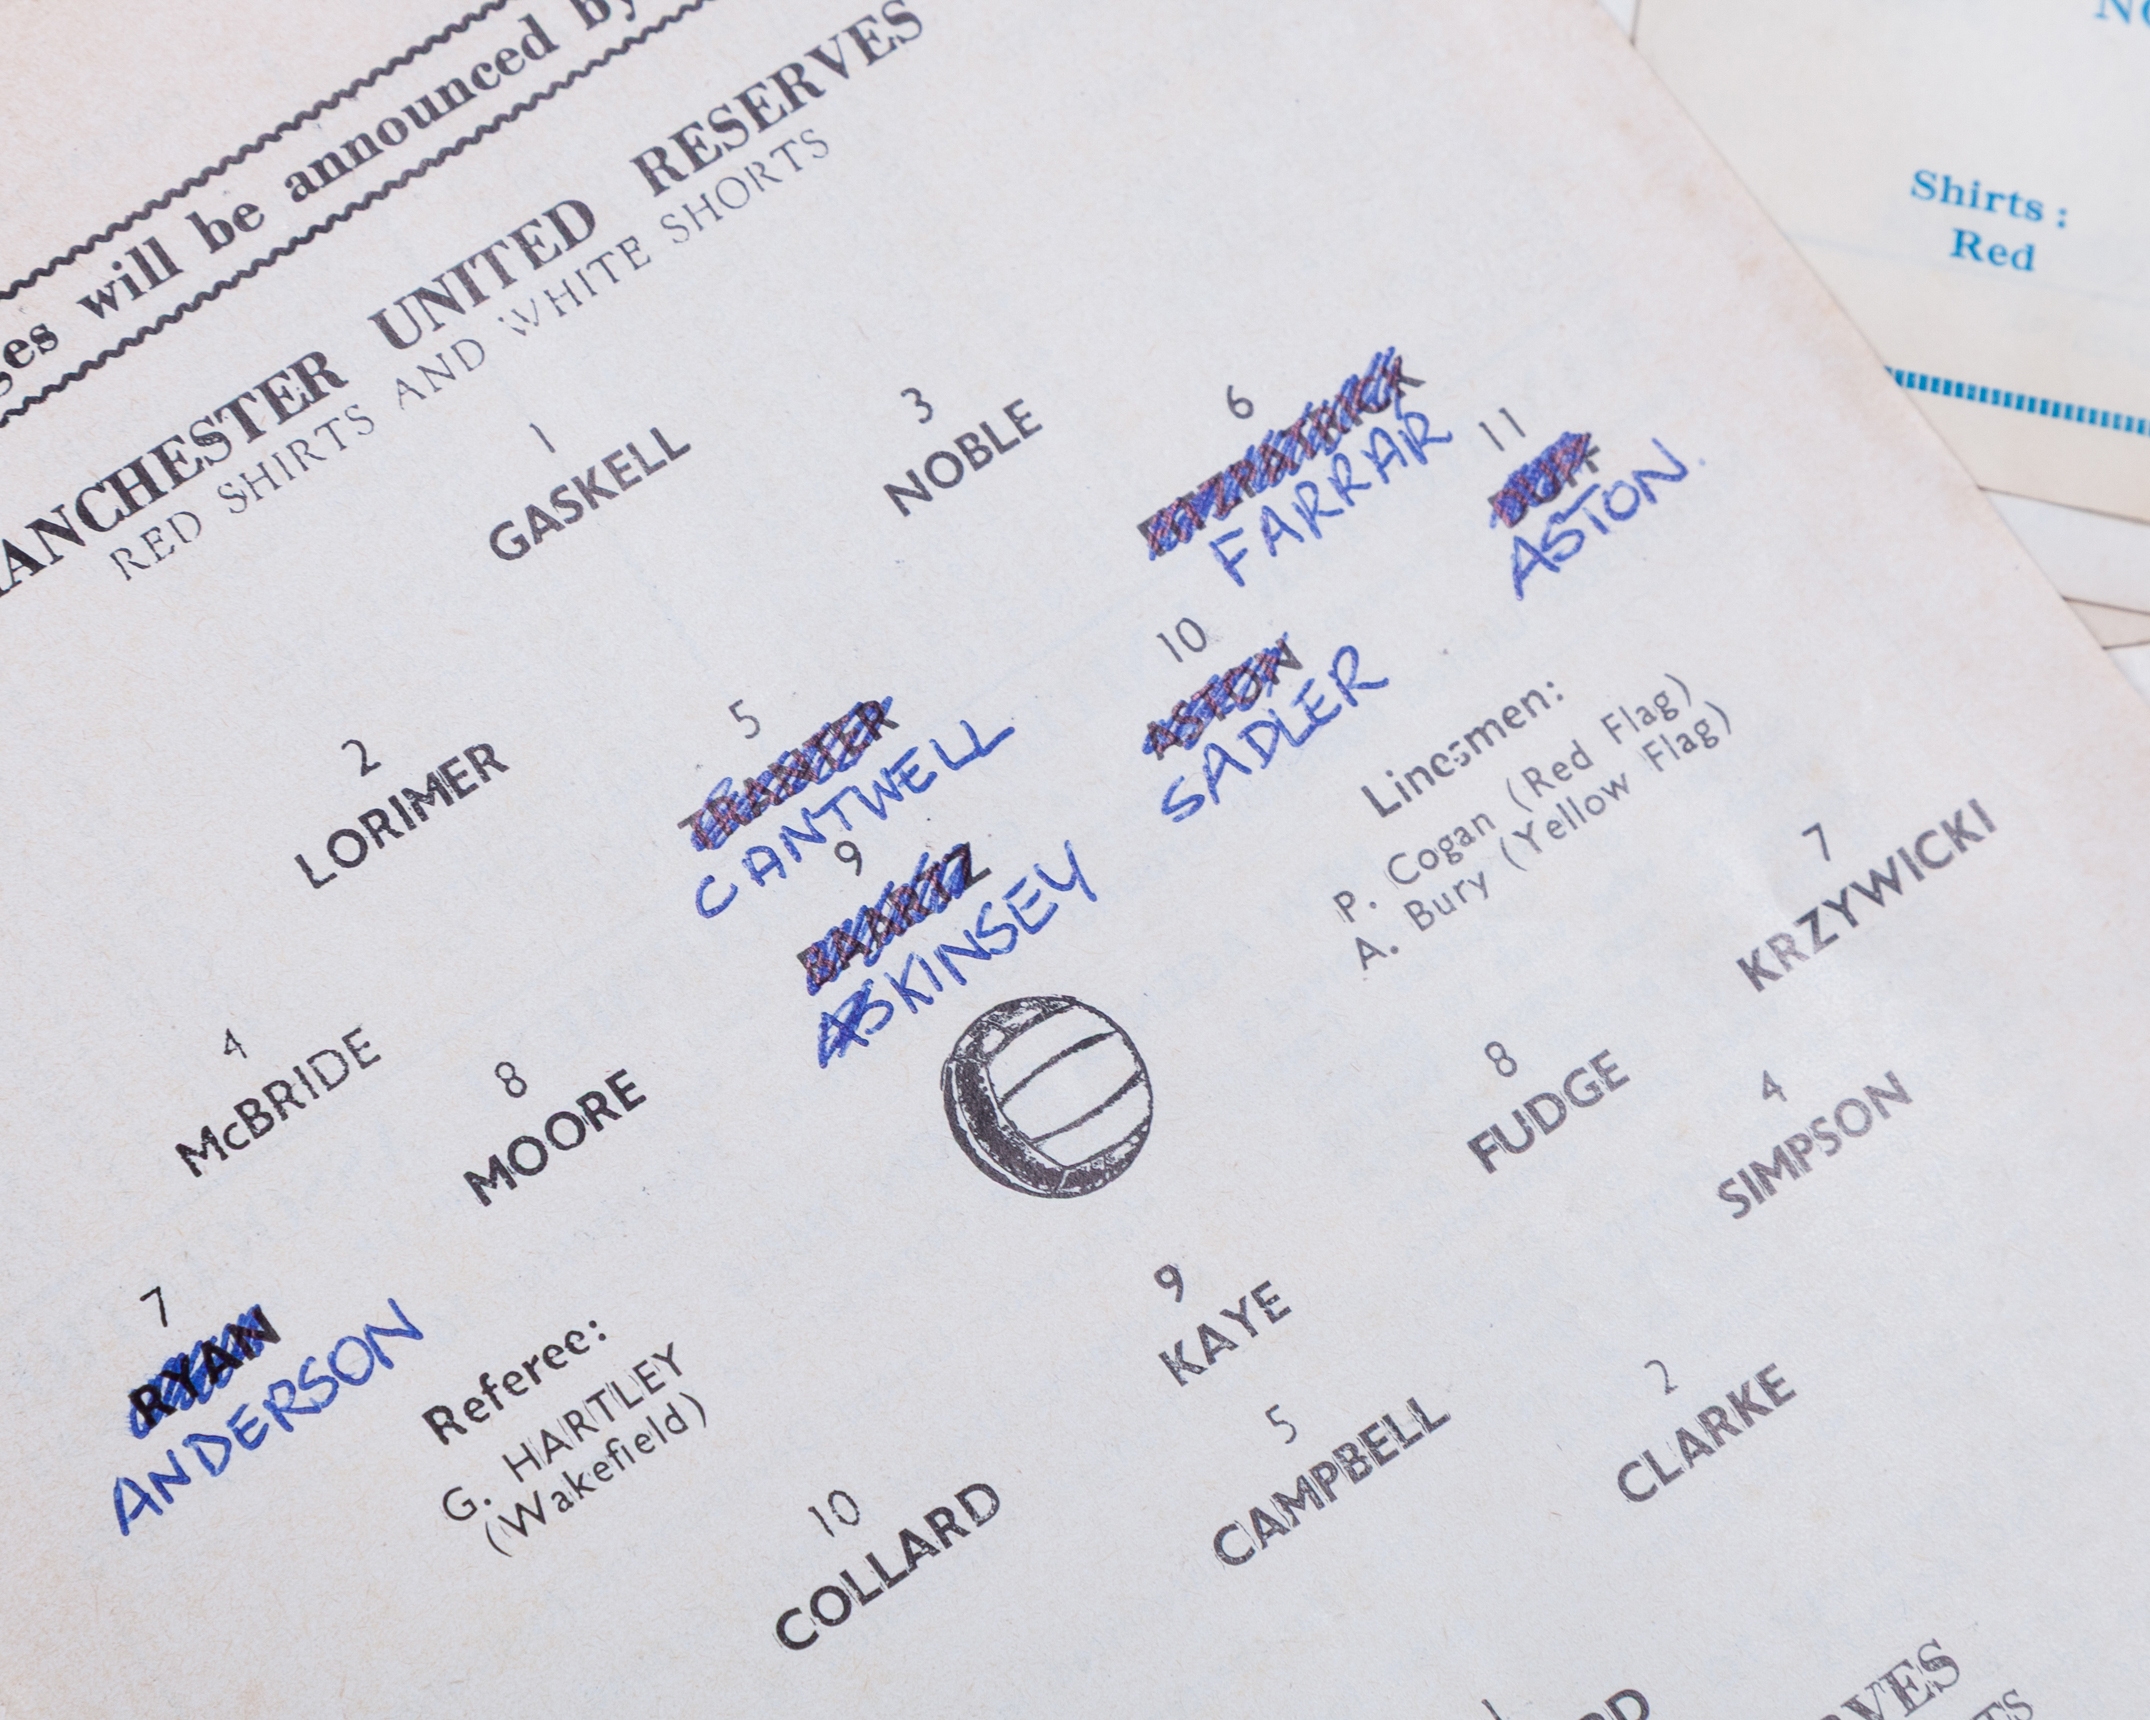 will be announced by
MANCHESTER UNITED RESERVES
RED SHIRTS AND WHITE SHORTS
1
GASKELL
2
LORIMER
3
NOBLE
4
McBRIDE
5
TRANTER
CANTWELL
6
FITZPATRICK
FARRAR
7
RYAN
ANDERSON
8
MOORE
9
KINSEY
10
ASTON
SADLER
11
DUFF
ASTON.
Referee:
G. HARTLEY
(Wakefield)
Linesmen:
P. Cogan (Red Flag)
A. Bury (Yellow Flag)
10
COLLARD
9
KAYE
8
FUDGE
7
KRZYWICKI
5
CAMPBELL
4
SIMPSON
2
CLARKE
1
Shirts :
Red